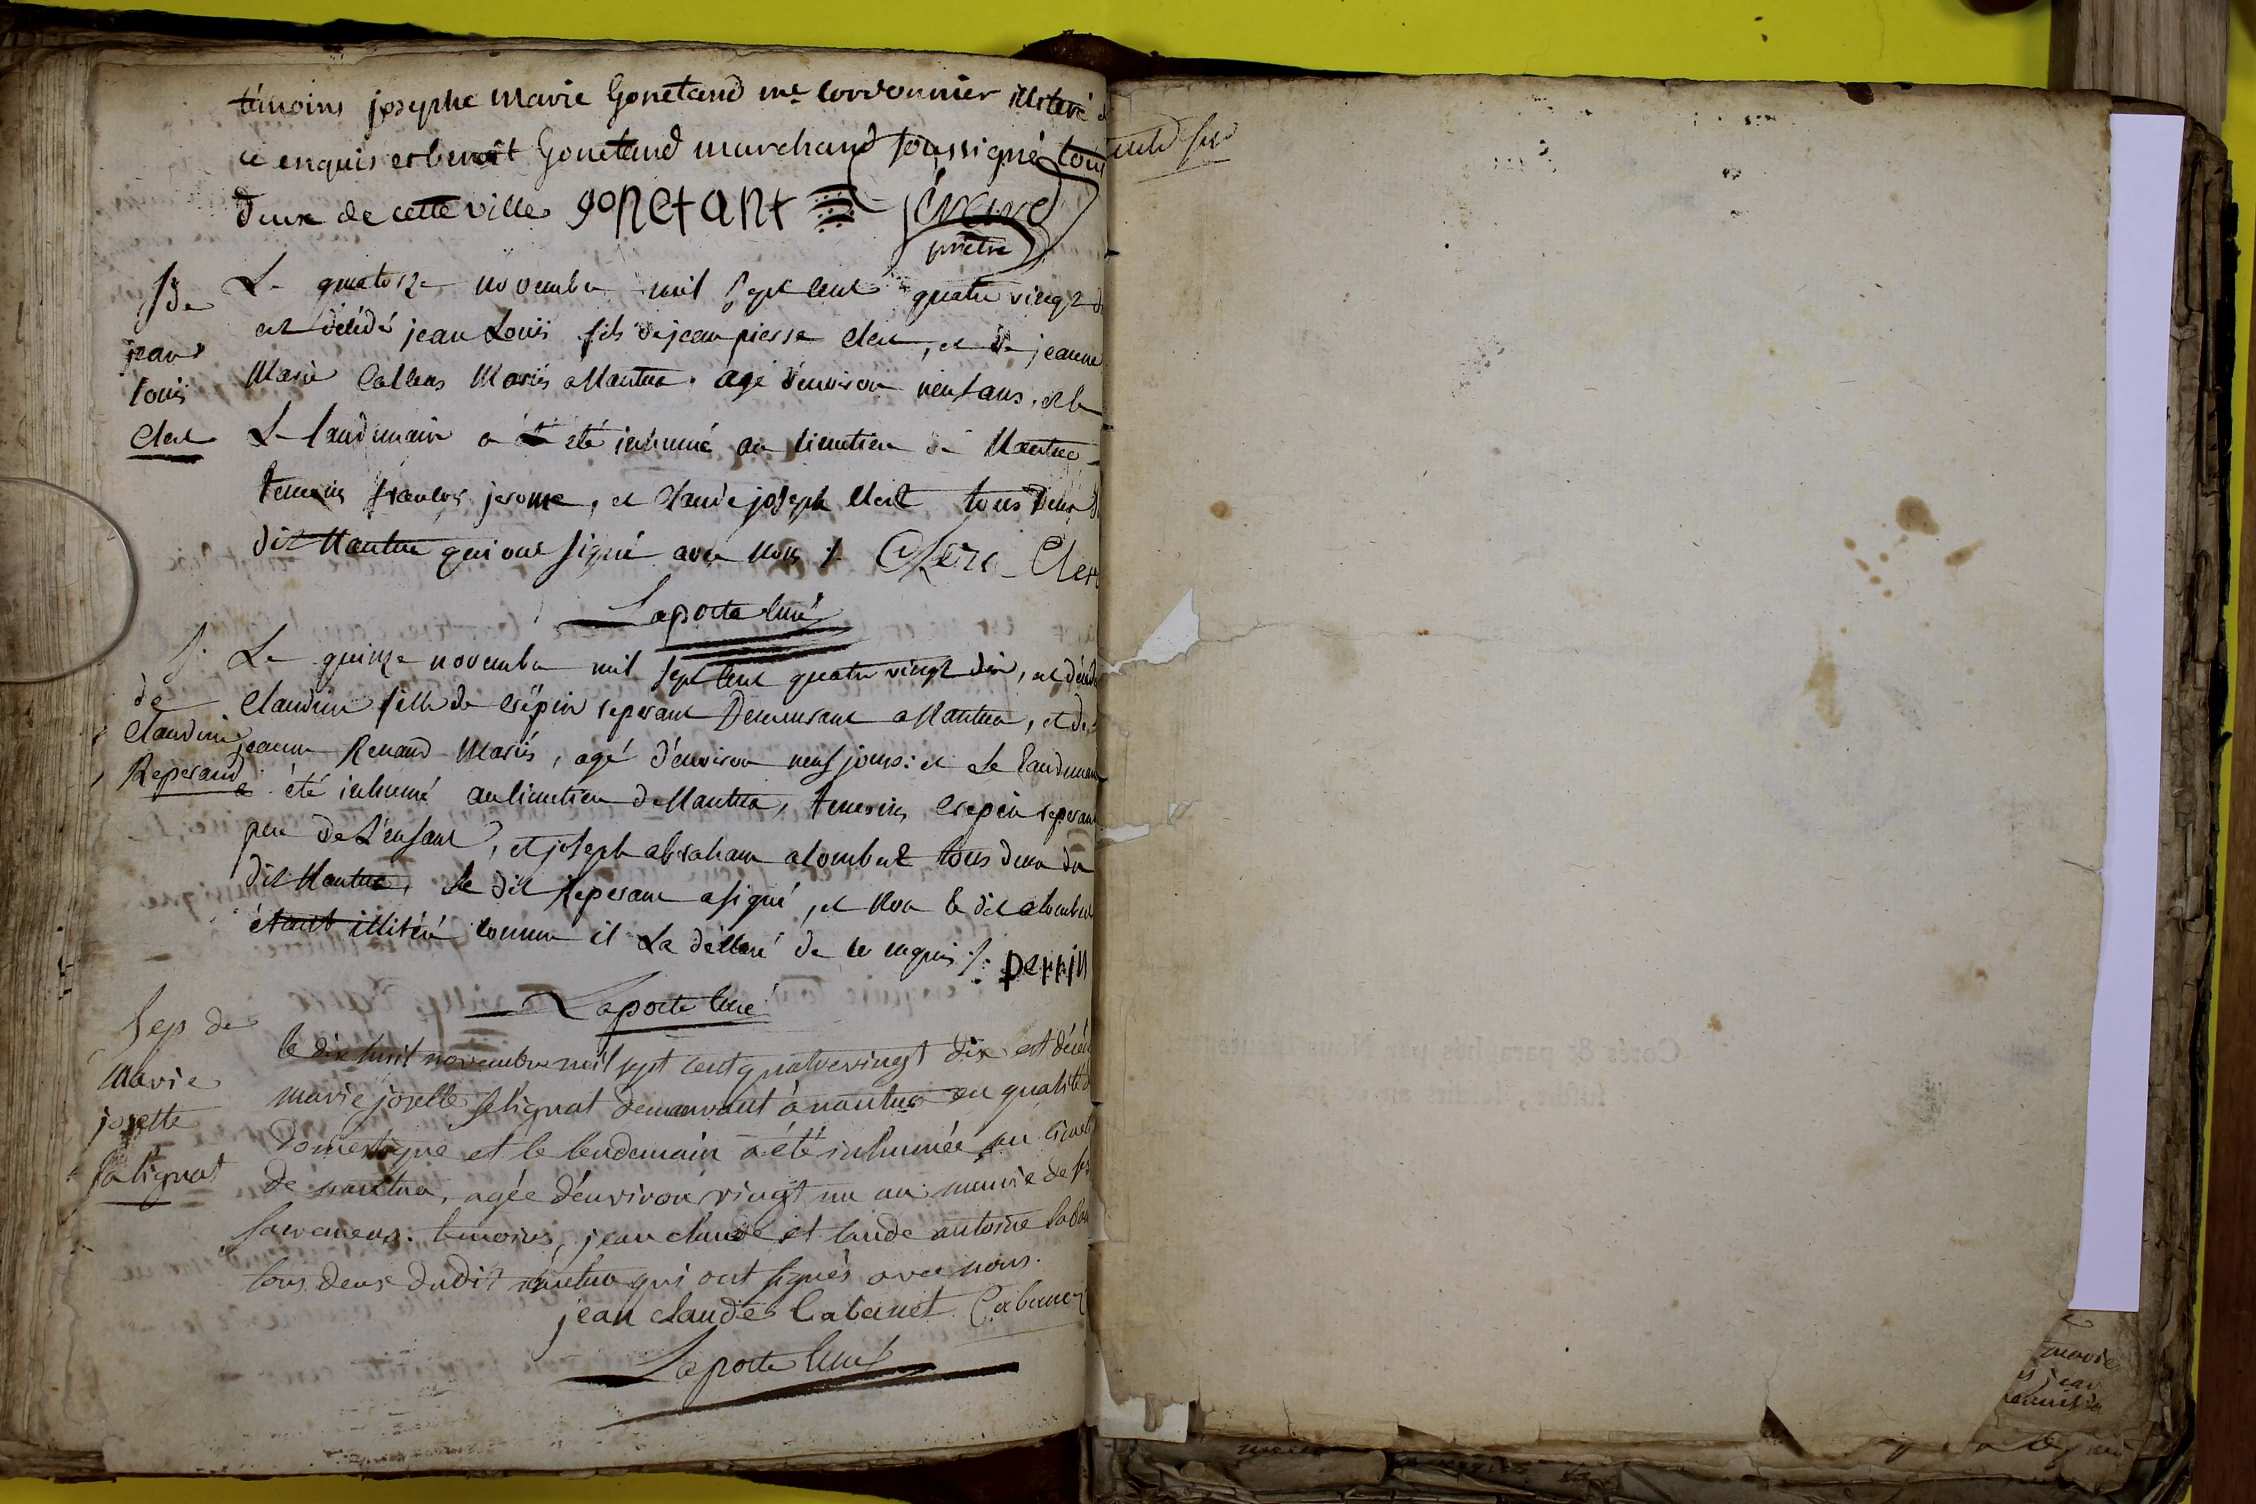 témoins josephe Marie Gonetand me cordonnier illiteré
ce enquis et benoît Gonetand marchand soussigné tous
deux de cette ville gonetant
prêtre
Se
jean
Louis
Clerc
Le quatorze novembre mil sept cent quatre vingt
est décédé jean Louis fils de jean pierre Clerc, et de jeanne
Marie Mariés a Nantua. agé d'environ neuf ans, et le
Le landemain a été inhumé au simetiere de Nantua
temoins francois jerome, et Claude joseph Clerc tous deux
dit Nantua qui ont signé avec nous ./. Clerc Clerc
Laporte Curé
S.
de
Claudine
Reperand
Le quinze novembre mil sept cent quatre vingt dix, est décédé
Claudine fille de Crépin reperant Demeurant a Nantua, et de
jeanne Renaud Mariés, agé d'environ neuf jours: et Le landemain
a été inhumé au simetiere de Nantua, temoins Crepin reperant
pere de L'enfant, et joseph abraham alombert tous deux du
dit Nantua, Le dit Reperant a signé, et Non le dit alombert
étant illitéré comme il La déclaré de ce enquis ./. perrin
Laporte Curé
Sep de
Marie
josette
salignat
le dix huit novembre mil sept cent quatrevingt dix est décédé
marie josette salignat demeurant à nantua en qualité
domestique et le lendemain a été inhumée au
de nantua, agée d'environ vingt un an munie de ses
sacremens. temoins, jean claude et laude antoine
tous deux dudit nantua qui ont signés avec nous.
jean claude Cabanet Cabanet
Laporte Curé